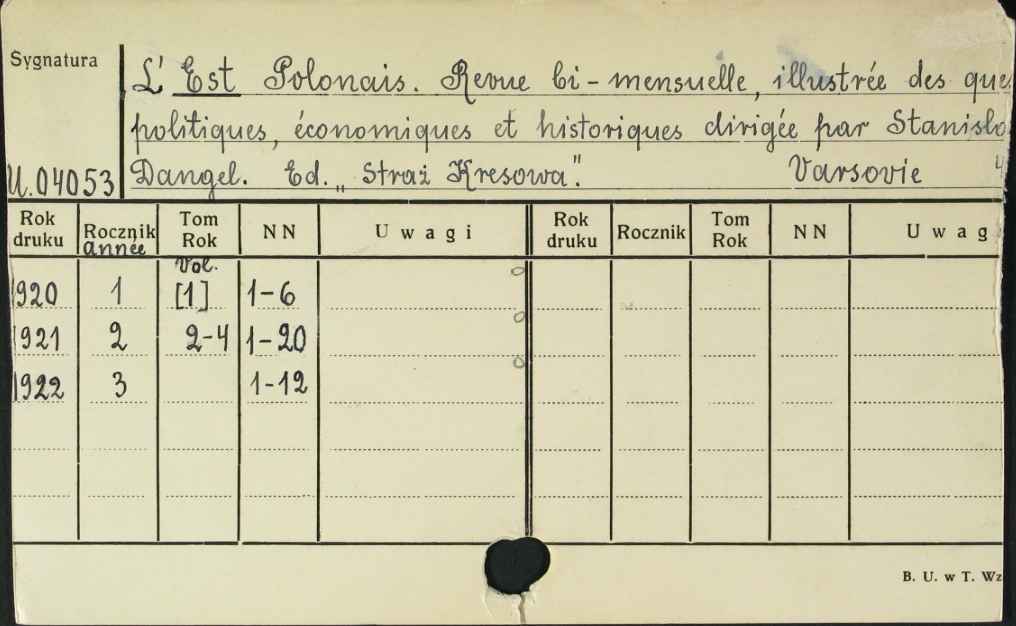 Sygnatura
L' Est Polonais. Revue bi-mensuelle, illustrée des que
politiques, économiques et historiques dirigée par Stanislo
U.04053 Dangel. Ed. „Straż Kresowa". Varsovie 4
Rok druku Rocznik année Tom Rok Vol. NN Uwagi Rok druku Rocznik Tom Rok NN Uwag
1920 1 [1] 1-6
1921 2 2-4 1-20
1922 3 1-12
B. U. w T. Wz